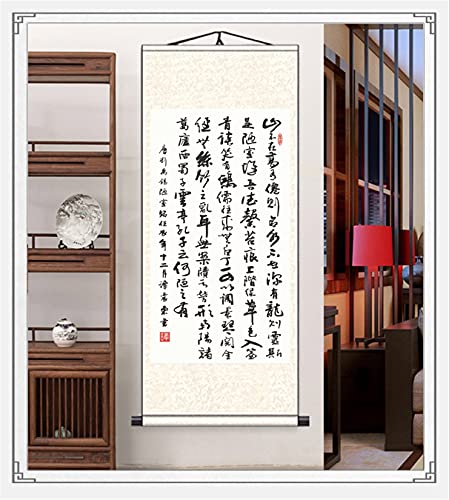 山不在高有僊則名水不在深有龍則靈斯
是陋室惟吾德馨苔痕上階綠草色入簾
青談笑有鴻儒往來無白丁可以調素琴閱金
經無絲竹之亂耳無案牘之勞形南陽諸
葛廬西蜀子雲亭孔子云何陋之有
唐劉禹錫陋室銘 年十二月 書